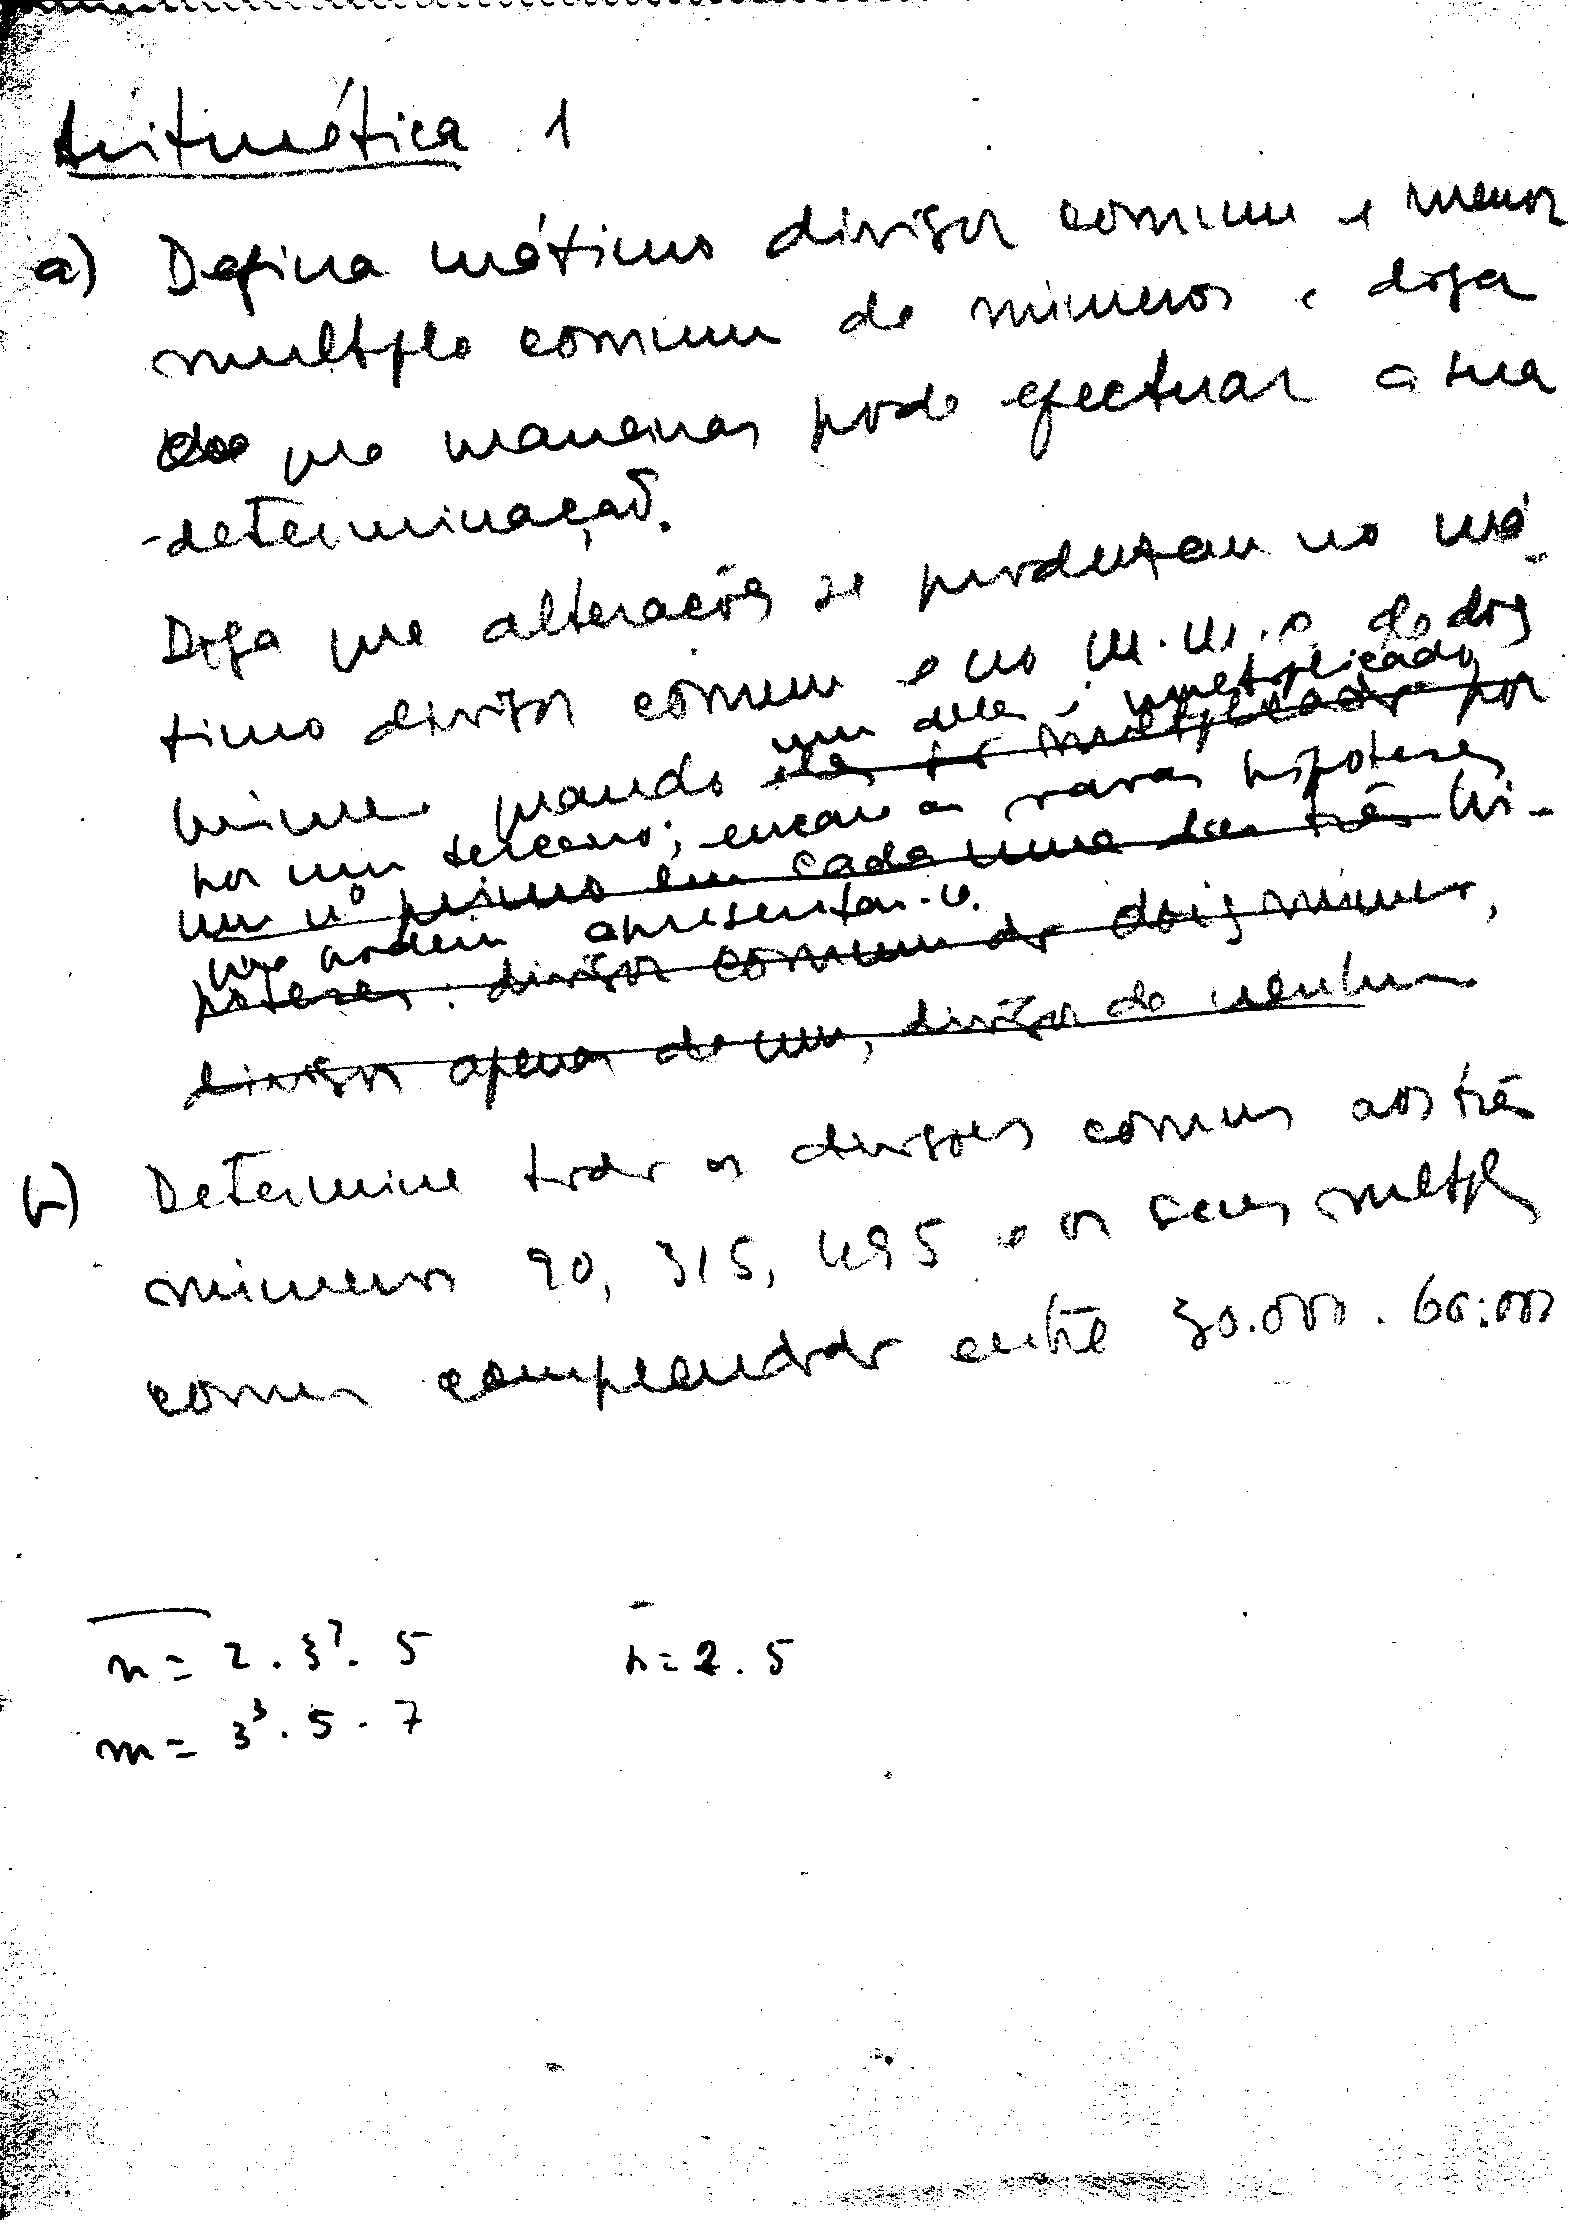 Aritmética 1
a) Defina máximo divisor comum e menor
multiplo comum de números e diga
de que maneiras pode efectuar a sua
determinação.
Diga que alterações se produzem no má-
ximo divisor comum e no m.m.c. de dois
números quando um deles é multiplicado
eles se multiplicado por
por um terceiro; encare as várias hipoteses
um nº primo em cada uma das três hi-
que podem apresentar-se.
poteses: divisor comum dos dois números,
divisor apenas de um, divisor de nenhum
b) Determine todos os divisores comuns aos três
números 90, 315, 495 e os seus multiplos
comuns compreendidos entre 30.000 . 60.000
n = 2 . 3². 5 h = 2 . 5
m = 3³ . 5 . 7